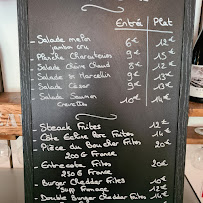 Entré Plat
- Salade major 6€ 12€
jambon cru
- Planche Charcuteries 9€ 15€
- Salade Chèvre Chaud 8€ 13€
- Salade St Marcellin 9€ 14€
- Salade César 9€ 14€
- Salade Saumon 10€ 14€
Crevettes
- Steack Frites 12€
- Côte Frites 14€
- Pièce du Boucher Frites 20€
200 G France
- Entrecote Frites 20€
250 G France
- Burger Cheddar Frites 14€
- Supp Fromage
- Double Burger Cheddar Frites